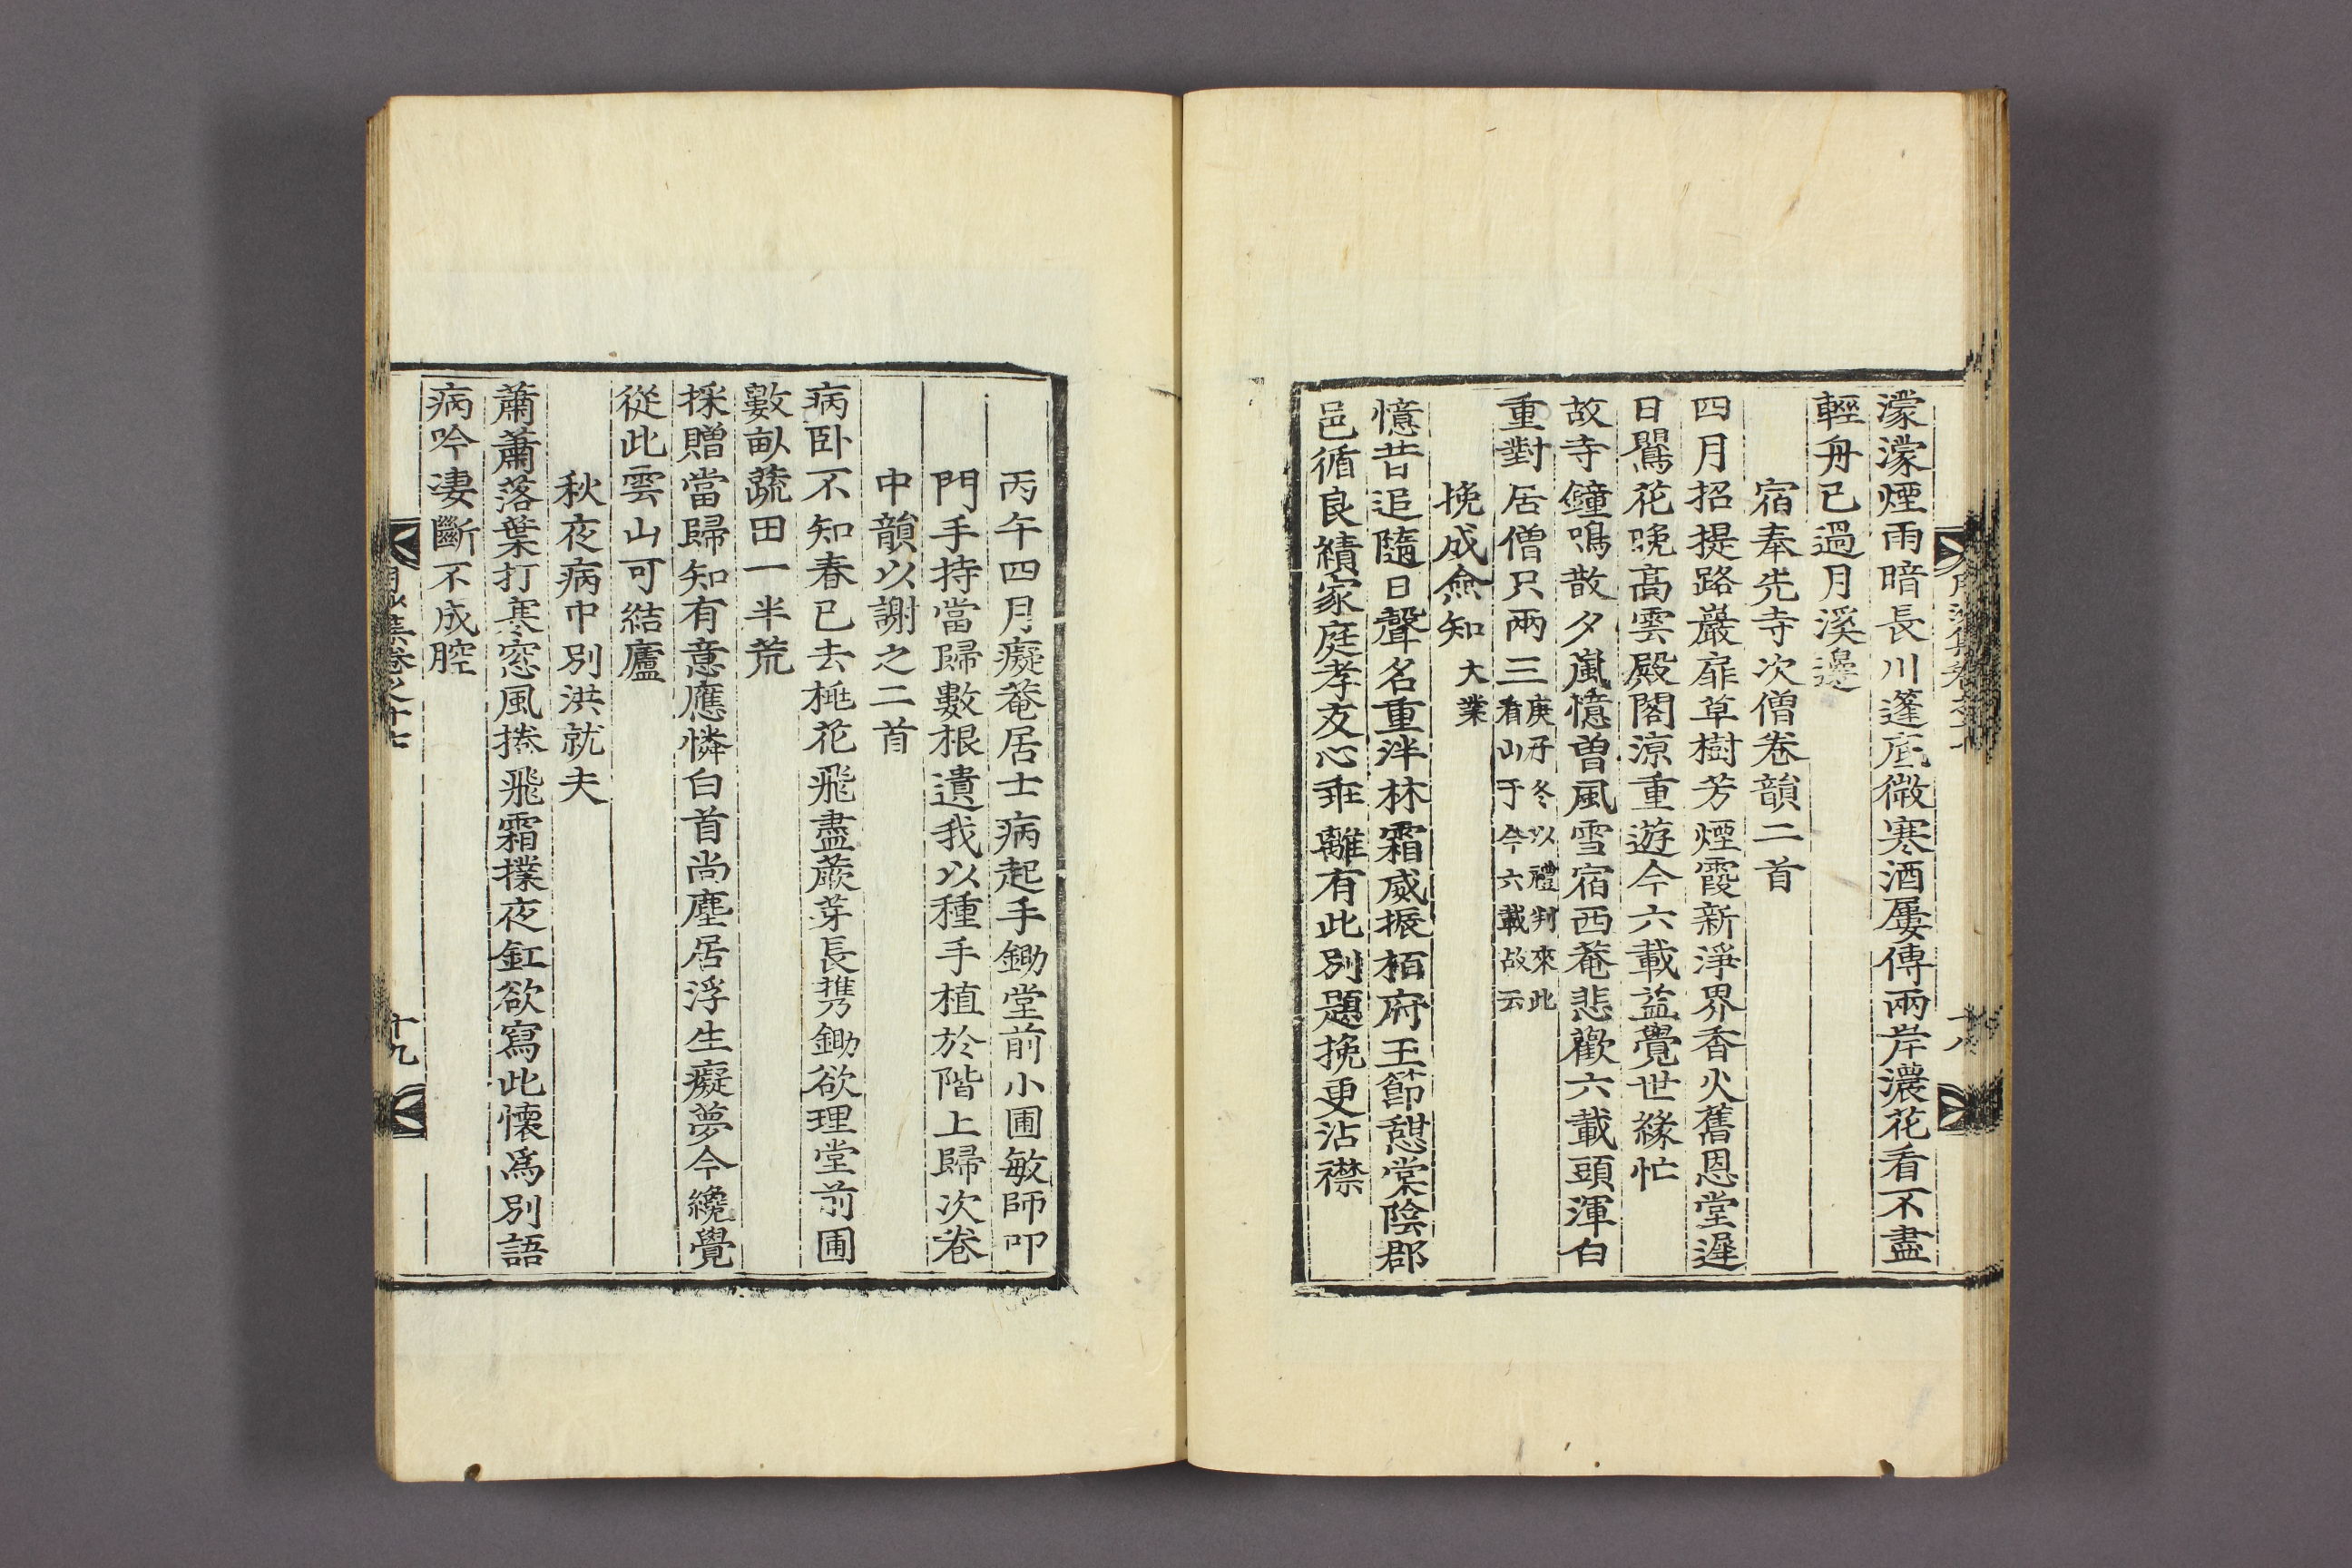 濛濛煙雨暗長川蓬底微寒酒屢傳兩岸濃花看不盡
輕舟已過月溪邊
宿奉先寺次僧卷韻二首
四月招提路巖扉草樹芳煙霞新淨界香火舊恩堂遲
日鸎花晚高雲殿閣凉重遊今六載益覺世緣忙
故寺鐘鳴散夕嵐憶曽風雪宿西菴悲歡六載頭渾白
重對居僧只兩三庚子冬以禮判來此
看山于今六載故云
挽成僉知大業
憶昔追隨日聲名重泮林霜威振栢府玉節憇棠陰郡
邑循良績家庭孝友心乖離有此別題挽更沾襟
十八
丙午四月癡菴居士病起手鋤堂前小圃敏師叩
門手持當歸數根遺我以種手植於階上歸次卷
中韻以謝之二首
病卧不知春已去桃花飛盡蕨芽長携鋤欲理堂前圃
數畝蔬田一半荒
採贈當歸知有意應憐白首尚塵居浮生癡夢今纔覺
從此雲山可結廬
秋夜病中別洪就夫
蕭蕭落葉打寒窓風捲飛霜撲夜釭欲寫此懷爲別語
病吟凄斷不成腔
集卷之十七
十九